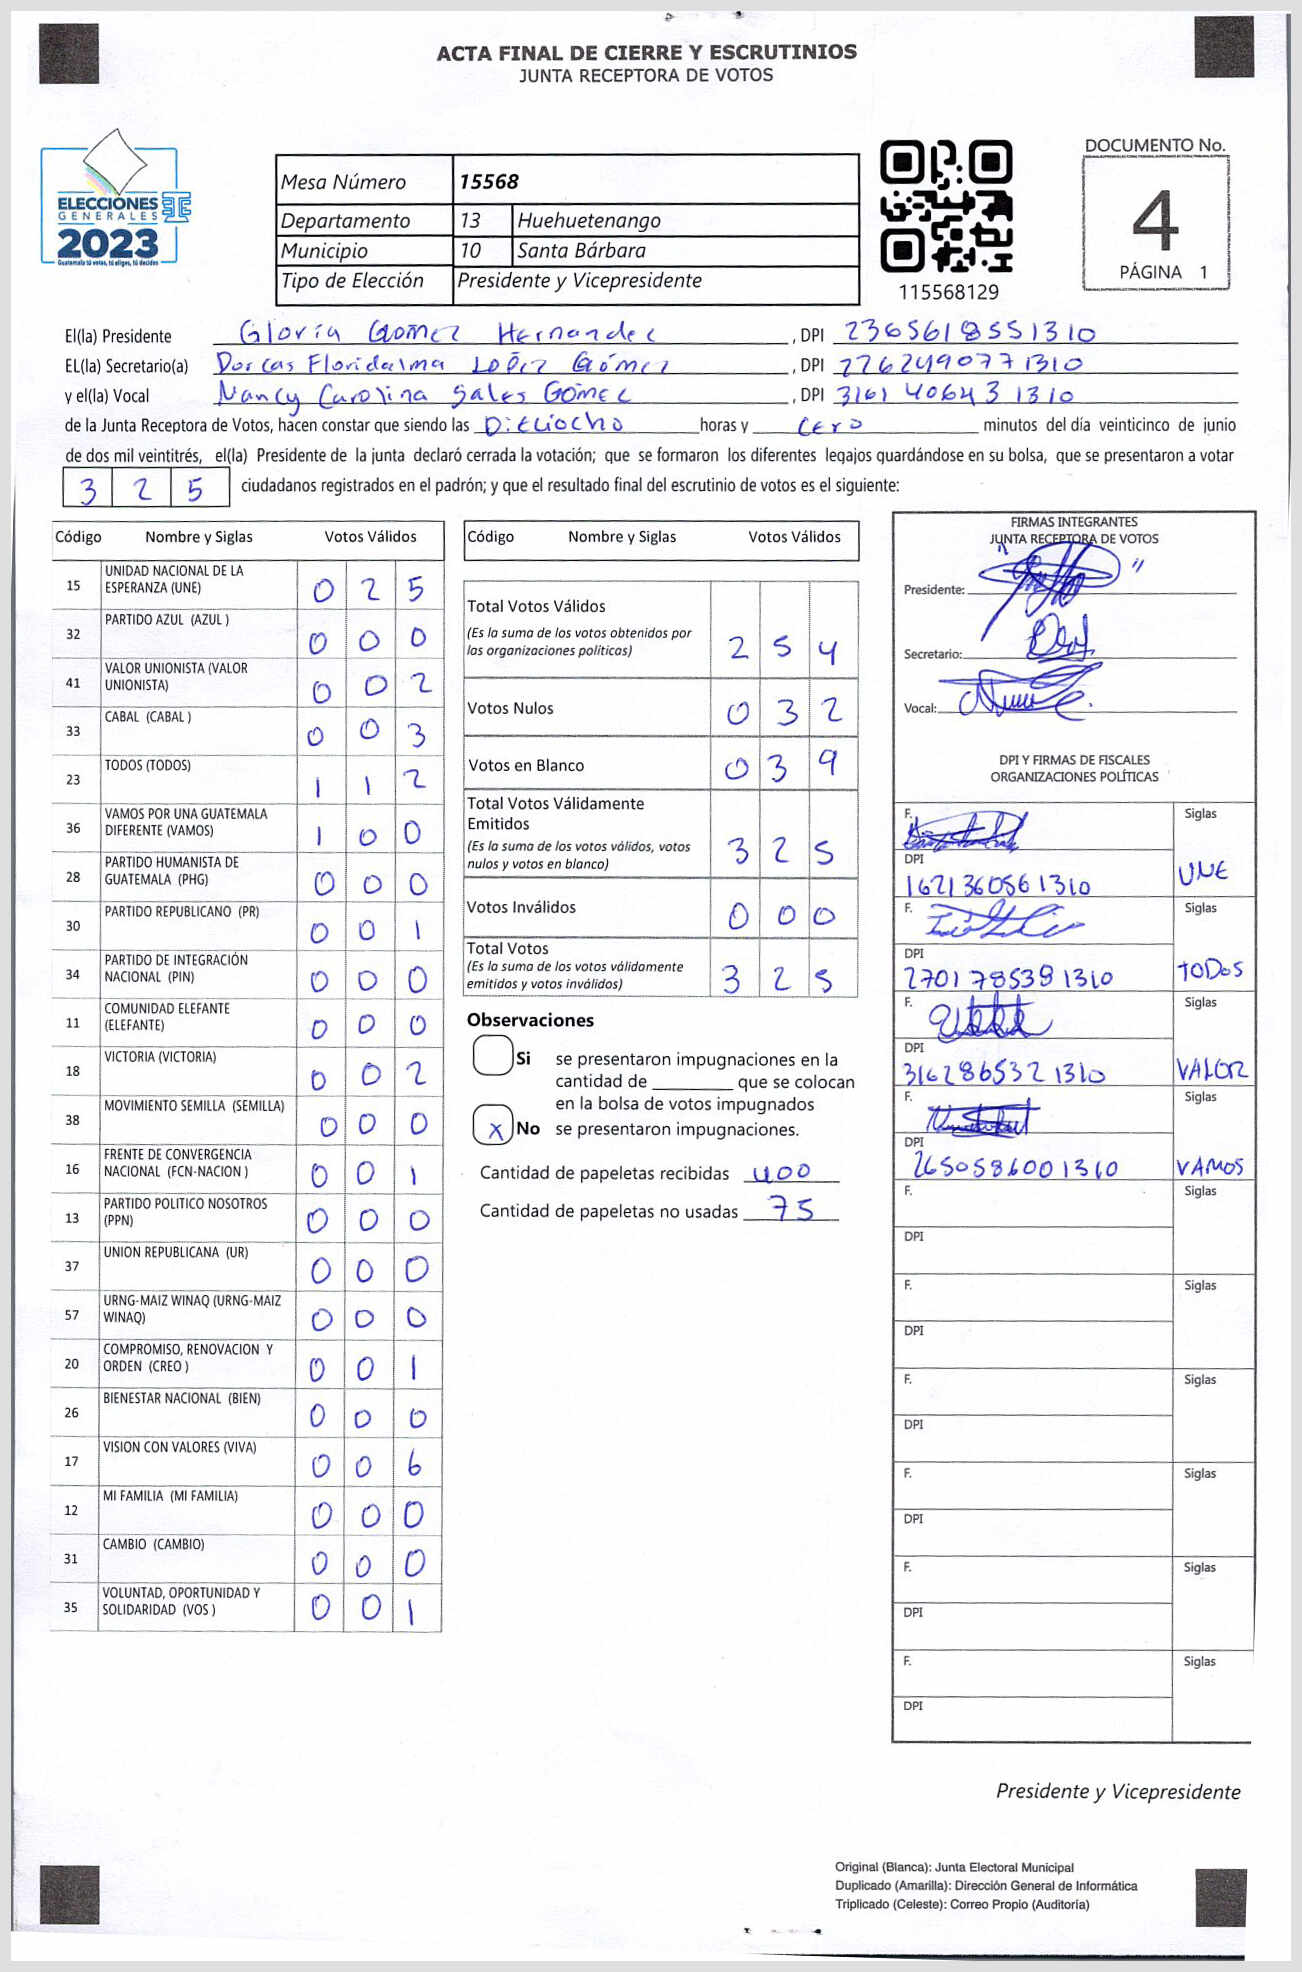 ACTA FINAL DE CIERRE Y ESCRUTINIOS
JUNTA RECEPTORA DE VOTOS
ELECCIONES
GENERALES
2023
Guatemala tú votas, tú eliges, tú decides
Mesa Número 15568
Departamento 13 Huehuetenango
Municipio 10 Santa Bárbara
Tipo de Elección Presidente y Vicepresidente
115568129
DOCUMENTO No.
4
PÁGINA 1
El(la) Presidente Gloria Gómez Hernandez, DPI 2365618551310
EL(la) Secretario(a) Dorcas Floridalma López Gómez, DPI 2262490771310
y el(la) Vocal Nancy Carolina Sales Gómez, DPI 3161406431310
de la Junta Receptora de Votos, hacen constar que siendo las Dieciocho horas y cero minutos del día veinticinco de junio
de dos mil veintitrés, el(la) Presidente de la junta declaró cerrada la votación; que se formaron los diferentes legajos guardándose en su bolsa, que se presentaron a votar
3 2 5 ciudadanos registrados en el padrón; y que el resultado final del escrutinio de votos es el siguiente:
Código Nombre y Siglas Votos Válidos
15 UNIDAD NACIONAL DE LA
ESPERANZA (UNE) 0 2 5
32 PARTIDO AZUL (AZUL ) 0 0 0
41 VALOR UNIONISTA (VALOR
UNIONISTA) 0 0 2
33 CABAL (CABAL ) 0 0 3
23 TODOS (TODOS) 1 1 2
36 VAMOS POR UNA GUATEMALA
DIFERENTE (VAMOS) 1 0 0
28 PARTIDO HUMANISTA DE
GUATEMALA (PHG) 0 0 0
30 PARTIDO REPUBLICANO (PR) 0 0 1
34 PARTIDO DE INTEGRACIÓN
NACIONAL (PIN) 0 0 0
11 COMUNIDAD ELEFANTE
(ELEFANTE) 0 0 0
18 VICTORIA (VICTORIA) 0 0 2
38 MOVIMIENTO SEMILLA (SEMILLA) 0 0 0
16 FRENTE DE CONVERGENCIA
NACIONAL (FCN-NACION ) 0 0 1
13 PARTIDO POLITICO NOSOTROS
(PPN) 0 0 0
37 UNION REPUBLICANA (UR) 0 0 0
57 URNG-MAIZ WINAQ (URNG-MAIZ
WINAQ) 0 0 0
20 COMPROMISO, RENOVACION Y
ORDEN (CREO ) 0 0 1
26 BIENESTAR NACIONAL (BIEN) 0 0 0
17 VISION CON VALORES (VIVA) 0 0 6
12 MI FAMILIA (MI FAMILIA) 0 0 0
31 CAMBIO (CAMBIO) 0 0 0
35 VOLUNTAD, OPORTUNIDAD Y
SOLIDARIDAD (VOS ) 0 0 1
Código Nombre y Siglas Votos Válidos
Total Votos Válidos
(Es la suma de los votos obtenidos por
las organizaciones políticas) 2 5 4
Votos Nulos 0 3 2
Votos en Blanco 0 3 9
Total Votos Válidamente
Emitidos
(Es la suma de los votos válidos, votos
nulos y votos en blanco) 3 2 5
Votos Inválidos 0 0 0
Total Votos
(Es la suma de los votos válidamente
emitidos y votos inválidos) 3 2 5
Observaciones
Si se presentaron impugnaciones en la
cantidad de ________ que se colocan
en la bolsa de votos impugnados
X No se presentaron impugnaciones.
Cantidad de papeletas recibidas 400
Cantidad de papeletas no usadas 75
FIRMAS INTEGRANTES
JUNTA RECEPTORA DE VOTOS
Presidente:
Secretario:
Vocal:
DPI Y FIRMAS DE FISCALES
ORGANIZACIONES POLÍTICAS
F. Siglas
DPI
1621360561310 UNE
F. Siglas
DPI
2701785391310 TODOS
F. Siglas
DPI
3162865321310 VALOR
F. Siglas
DPI
2650586001310 VAMOS
F. Siglas
DPI
F. Siglas
DPI
F. Siglas
DPI
F. Siglas
DPI
F. Siglas
DPI
F. Siglas
DPI
Presidente y Vicepresidente
Original (Blanca): Junta Electoral Municipal
Duplicado (Amarilla): Dirección General de Informática
Triplicado (Celeste): Correo Propio (Auditoría)